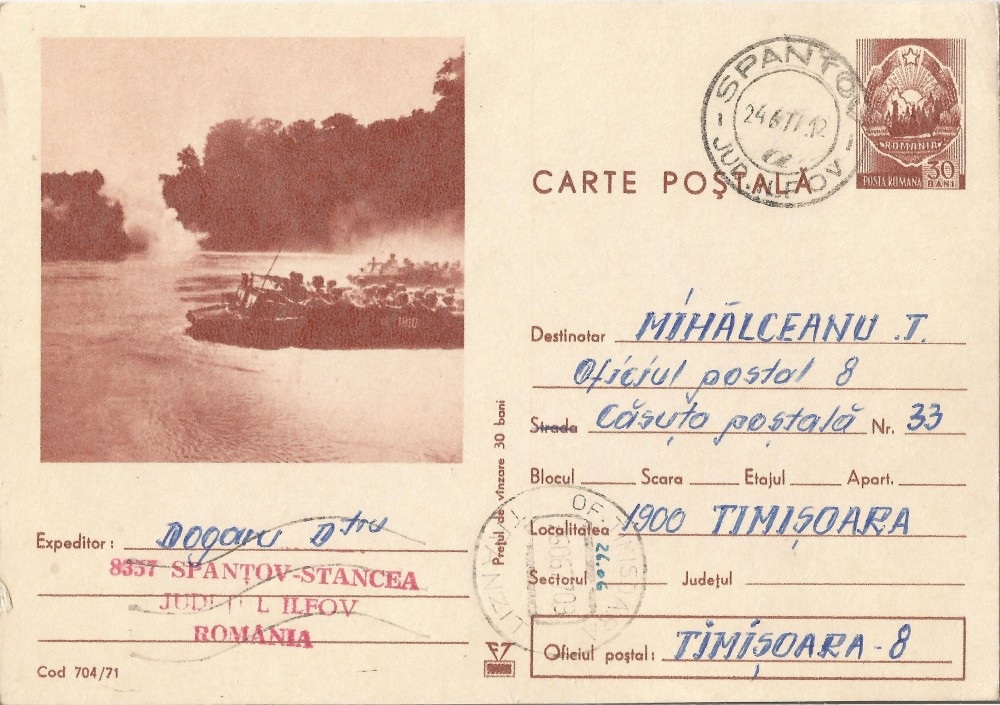 SPANȚOV
24.6.77.12
JUD. ILFOV
ROMANIA
POSTA ROMANA 30 BANI
CARTE POȘTALĂ
Destinatar MIHĂLCEANU .I.
Oficiul postal 8
Strada Căsuța poștală Nr. 33
Blocul Scara Etajul Apart.
Localitatea 1900 TIMIȘOARA
Sectorul Județul
Oficiul poștal: TIMIȘOARA - 8
Prețul de vînzare 30 bani
24.06
Expeditor: Dogaru Dtru
8357 SPANȚOV-STANCEA
JUDEȚUL ILFOV
ROMÂNIA
Cod 704/71